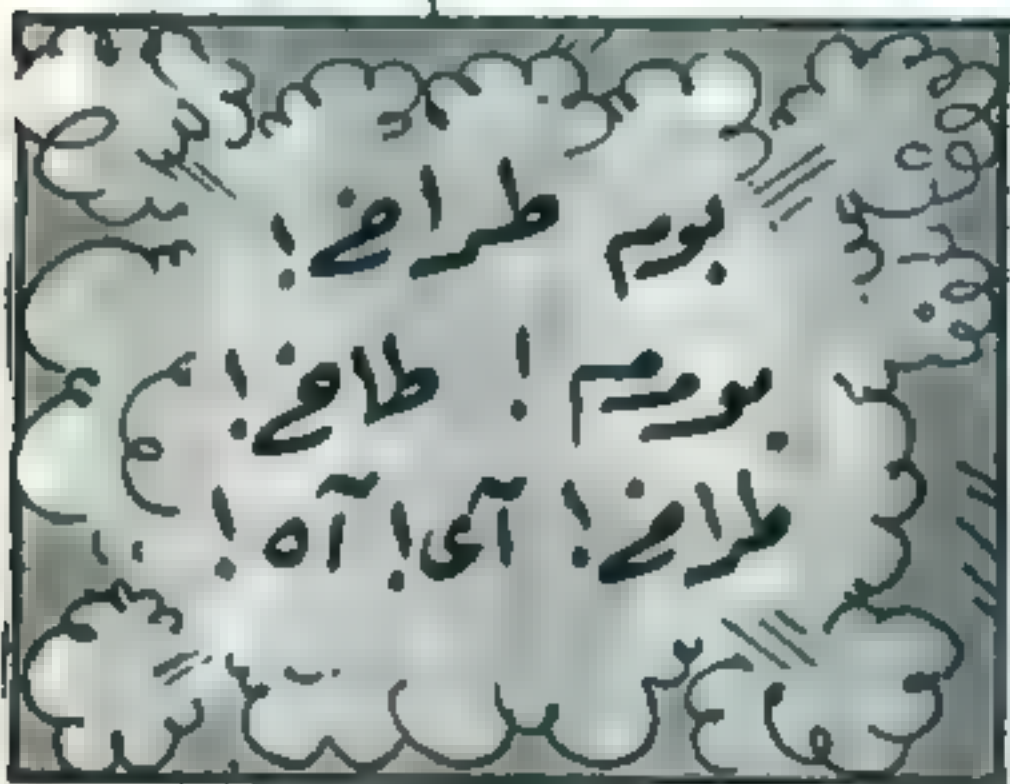 بوم طراخ !
بورم ! طاخ !
طراخ ! آى ! آه !